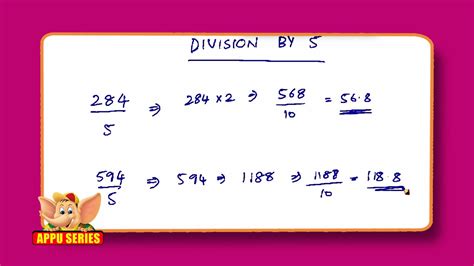 DIVISION BY 5
284/5 ⇒ 284 × 2 ⇒ 568/10 = 56.8
594/5 ⇒ 594 ⇒ 1188 ⇒ 1188/10 = 118.8
APPU SERIES